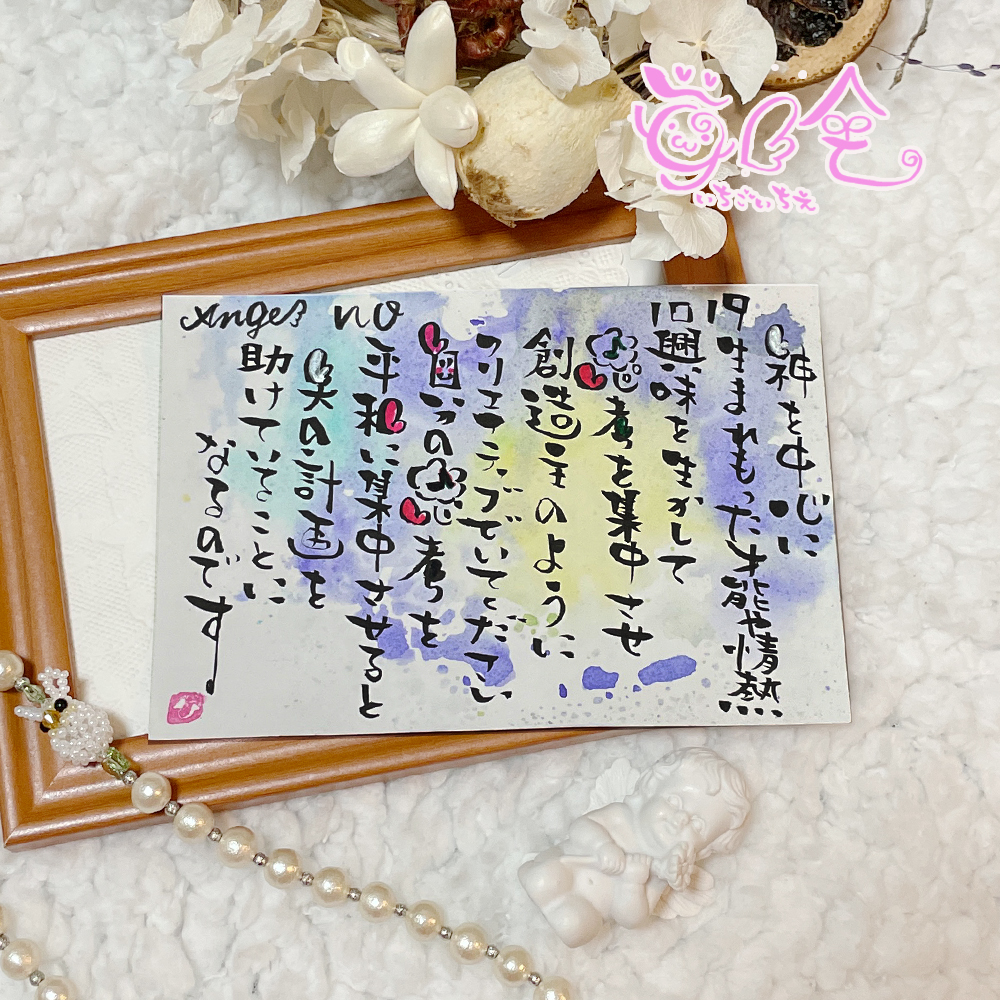 いちごいちえ
Angel NO
1910
神を中心に
生まれもった才能や情熱
興味を生かして
思考を集中させ
創造主のように
クリエティブでいてください
の思考を
平和に集中させると
天の計画を
助けていることに
なるのです。